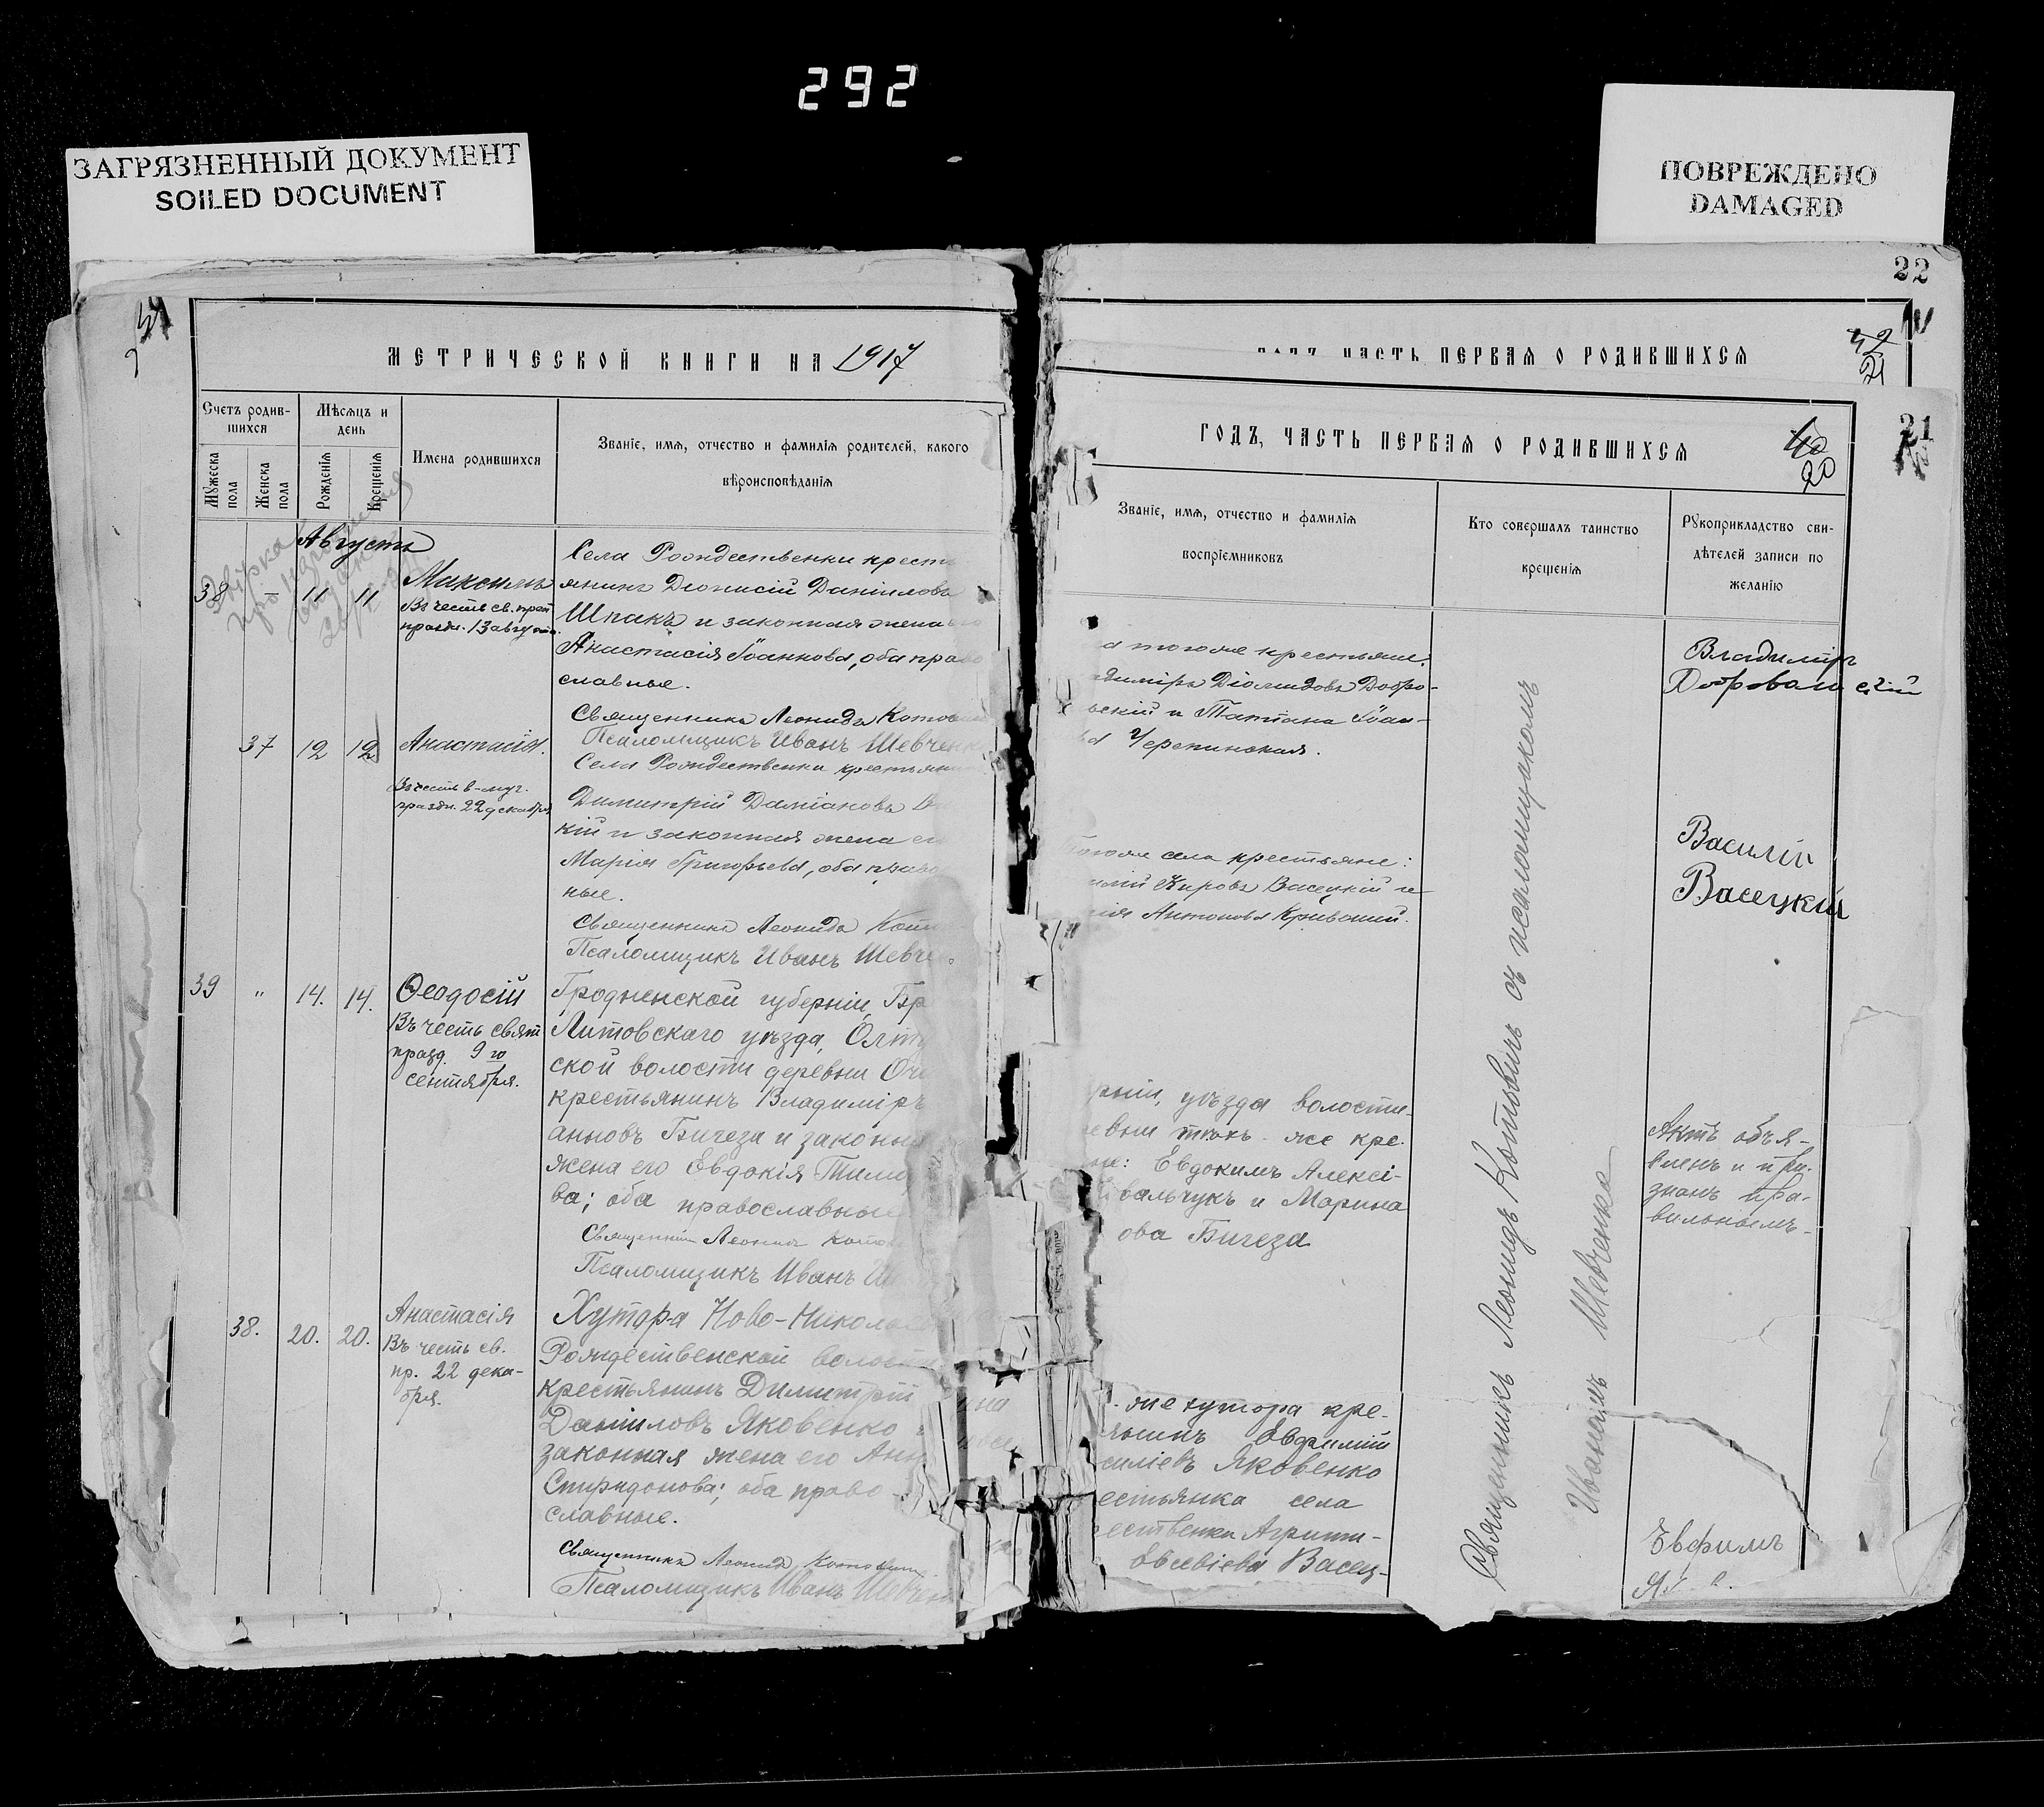 292
ЗАГРЯЗНЕННЫЙ ДОКУМЕНТ
SOILED DOCUMENT
ПОВРЕЖДЕНО
DAMAGED
22
МЕТРИЧЕСКОЙ КНИГИ НА 1917
Счетъ родив-
шихся
Мѣсяцъ и
день
Мужеска
пола
Женска
пола
Рожденія
Крещенія
Имена родившихся
Званіе, имя, отчество и фамилія родителей, какого
вѣроисповѣданія
Августъ
38 – 11 11
Максимъ
Въ честь св. преп
праздн. 13 августа.
Села Рождественки кресть
янинъ Діонисій Даниловъ
Шпакъ и законная жена его
Анастасія Іоаннова, оба право
славные.
Священникъ Леонидъ Котович
Псаломщикъ Иванъ Шевченк
37 12 12
Анастасія.
Въ честь в-муч.
праздн. 22 декабря
Села Рождественки крестьянин
Димитрій Даміановъ
кій и законная жена ег
Марія Григорьева, оба право
ные.
Священникъ Леонидъ Кот
Псаломщикъ Иванъ Шевче
39 " 14. 14.
Ѳеодосій
Въ честь свят
празд. 9 го
сентября.
Гродненской губерніи, Бр
Литовскаго уѣзда, Олт
ской волости деревни
крестьянинъ Владиміръ
анновъ Бигеза и законна
жена его Евдокія Тим
ва; оба православные
Священник Леонидъ Котов
Псаломщикъ Иванъ Ш
38. 20. 20.
Анастасія
Въ честь св.
пр. 22 дека-
бря.
Хутора Ново-Никола
Рождественской волости
крестьянинъ Димитрій
Даниловъ Яковенко
законная жена его Анн
Спиридонова; оба право-
славные.
Священникъ Леонид Котович
Псаломщикъ Иванъ Шевчен
ЧАСТЬ ПЕРВАЯ О РОДИВШИХСЯ
21
ГОДЪ, ЧАСТЬ ПЕРВАЯ О РОДИВШИХСЯ
40
20
Званіе, имя, отчество и фамилія
воспріемниковъ
Кто совершалъ таинство
крещенія
Рукоприкладство сви-
дѣтелей записи по
желанію
а тогоже крестьяне:
адиміръ Діомидовъ Добро-
ьскій и Татіана Іоан-
ва Черепинская.
Владиміръ
Добровольскій
тогоже села крестьяне:
илій Кировъ Васецкій и
рія Антонова
Василій
Васецкій
рніи, уѣзда волости-
евни такъ-же кре-
не: Евдокимъ Алексі-
вальчукъ и Марина
ова Бигеза
Актъ объя-
вленъ и при-
знанъ пра-
вильнымъ-
же хутора кре-
янинъ Евфимій
силіевъ Яковенко
естьянка села
ественки Агрипи-
Евсевіева Васец-
Евфимъ
Священникъ Леонидъ Котовичъ съ псаломщикомъ
Иваномъ Шевченко